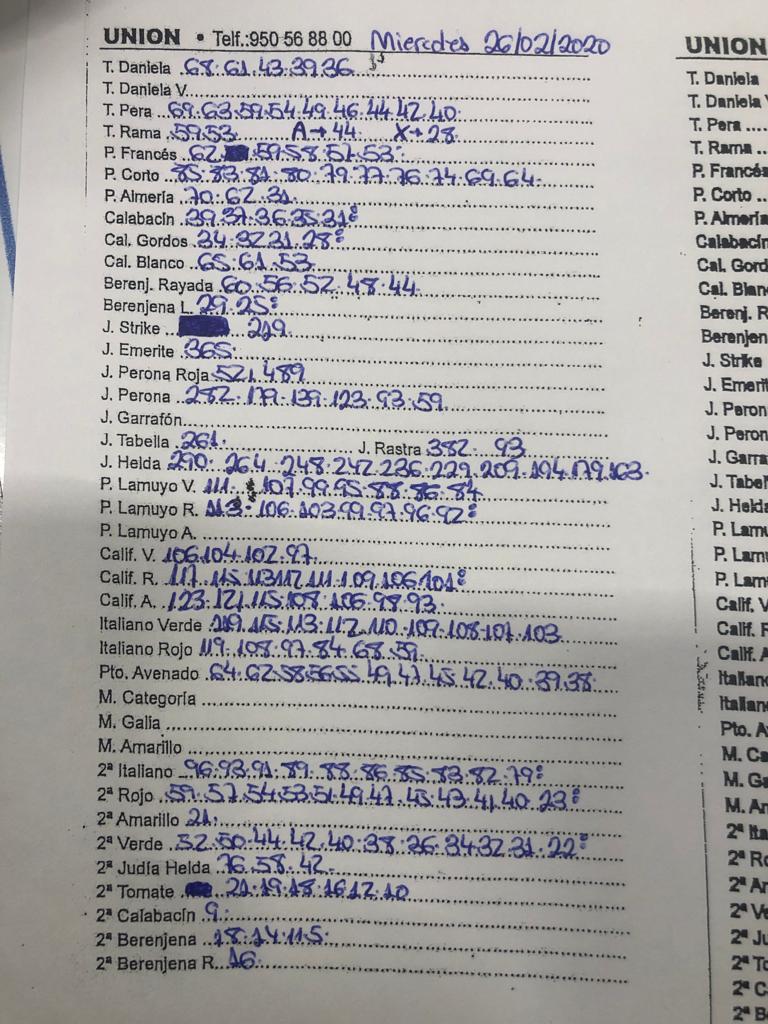 UNION • Telf.:950 56 88 00 Miercoles 26/02/2020
T. Daniela 68.61.43.39.36
T. Daniela V.
T. Pera 69.63.59.54.49.46.44.42.40
T. Rama 59.53 A→44 X→28
P. Francés 62 59.58.57.53:
P. Corto 85.83.81.80.79.77.76.74.69.64
P. Almería 70.62.31
Calabacín 39.37.36.35.31:
Cal. Gordos 34.32.31.28:
Cal. Blanco 65.61.53
Berenj. Rayada 60.56.52.48.44
Berenjena L. 29.25:
J. Strike 219
J. Emerite 365
J. Perona Roja 521.489
J. Perona 282.179.139.123.93.59
J. Garrafón
J. Tabella 261. J. Rastra 382. 93
J. Helda 290.264.248.242.236.229.209.194.179.163.
P. Lamuyo V. 111. 107.99.95.88.86.84
P. Lamuyo R. 113.106.103.99.97.96.92:
P. Lamuyo A.
Calif. V. 106.104.102.97.
Calif. R. 117.115.113.112.111.109.106.101:
Calif. A. 123.121.115.108.106.98.93.
Italiano Verde 119.115.113.112.110.109.108.107.103
Italiano Rojo 119.108.97.84.68.59
Pto. Avenado 64.62.58.56.55.49.47.45.42.40.39.38
M. Categoría
M. Galia
M. Amarillo
2ª Italiano 96.93.91.89.88.86.85.83.82.79:
2ª Rojo 59.57.54.53.51.49.47.45.43.41.40.23:
2ª Amarillo 21.
2ª Verde 52.50.44.42.40.38.36.34.32.31.22:
2ª Judía Helda 76.58.42
2ª Tomate 21.19.18.16.12.10
2ª Calabacín 9.
2ª Berenjena 18.14.11.5
2ª Berenjena R. 16
UNION
T. Daniela
T. Daniela
T. Pera
T. Rama
P. Francés
P. Corto
P. Almería
Calabacín
Cal. Gord
Cal. Blan
Berenj. R
Berenjen
J. Strike
J. Emerit
J. Peron
J. Peron
J. Garra
J. Tabel
J. Helda
P. Lamu
P. Lamu
P. Lam
Calif. V
Calif. R
Calif. A
Italian
Italian
Pto. A
M. Ca
M. Ga
M. An
2ª Ita
2ª Ro
2ª An
2ª Ve
2ª Ju
2ª To
2ª C
2ª B